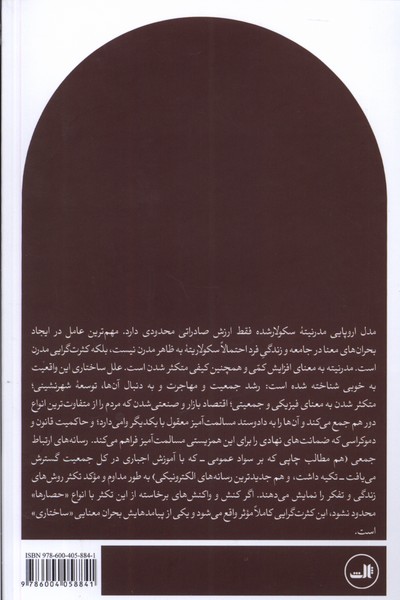 مدل اروپایی مدرنیتهٔ سکولارشده فقط ارزش صادراتی محدودی دارد. مهم‌ترین عامل در ایجاد
بحران‌های معنا در جامعه و زندگیِ فرد احتمالاً سکولاریتهٔ به ظاهر مدرن نیست، بلکه کثرت‌گرایی مدرن
است. مدرنیته به معنای افزایش کمّی و همچنین کیفی متکثر شدن است. علل ساختاری این واقعیت
به خوبی شناخته شده است: رشد جمعیت و مهاجرت و به دنبال آن‌ها، توسعهٔ شهرنشینی؛
متکثر شدن به معنای فیزیکی و جمعیتی؛ اقتصاد بازار و صنعتی‌شدن که مردم را از متفاوت‌ترین انواع
دور هم جمع می‌کند و آن‌ها را به دادوستد مسالمت‌آمیز معقول با یکدیگر وامی‌دارد؛ و حاکمیت قانون و
دموکراسی که ضمانت‌های نهادی را برای این همزیستی مسالمت‌آمیز فراهم می‌کند. رسانه‌های ارتباط
جمعی (هم مطالب چاپی که بر سواد عمومی ــ که با آموزش اجباری در کل جمعیت گسترش
می‌یافت ــ تکیه داشت، و هم جدیدترین رسانه‌های الکترونیکی) به طور مداوم و مؤکد تکثر روش‌های
زندگی و تفکر را نمایش می‌دهند. اگر کنش و واکنش‌های برخاسته از این تکثر با انواع «حصارها»
محدود نشود، این کثرت‌گرایی کاملاً مؤثر واقع می‌شود و یکی از پیامدهایش بحران معنایی «ساختاری»
است.
ISBN 978-600-405-884-1
9 786004 058841
ثالث